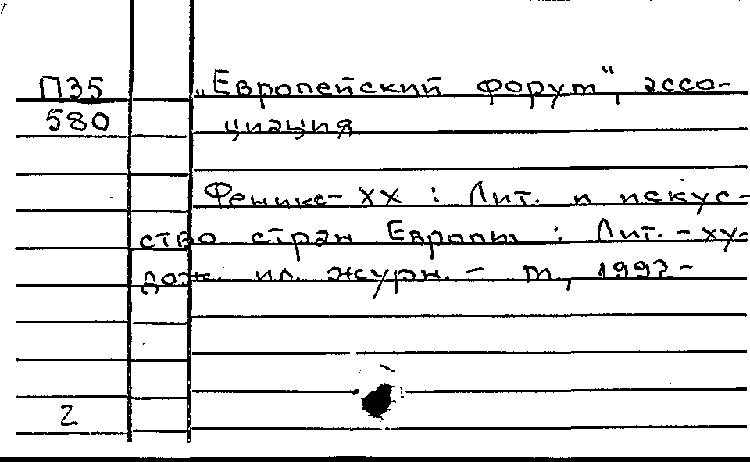 П35 „Европейский форум“, ассо-
580 циация
Феникс-XX : Лит. и искус-
ство стран Европы : Лит.-ху-
дож. ил. журн. - М., 1992-
2